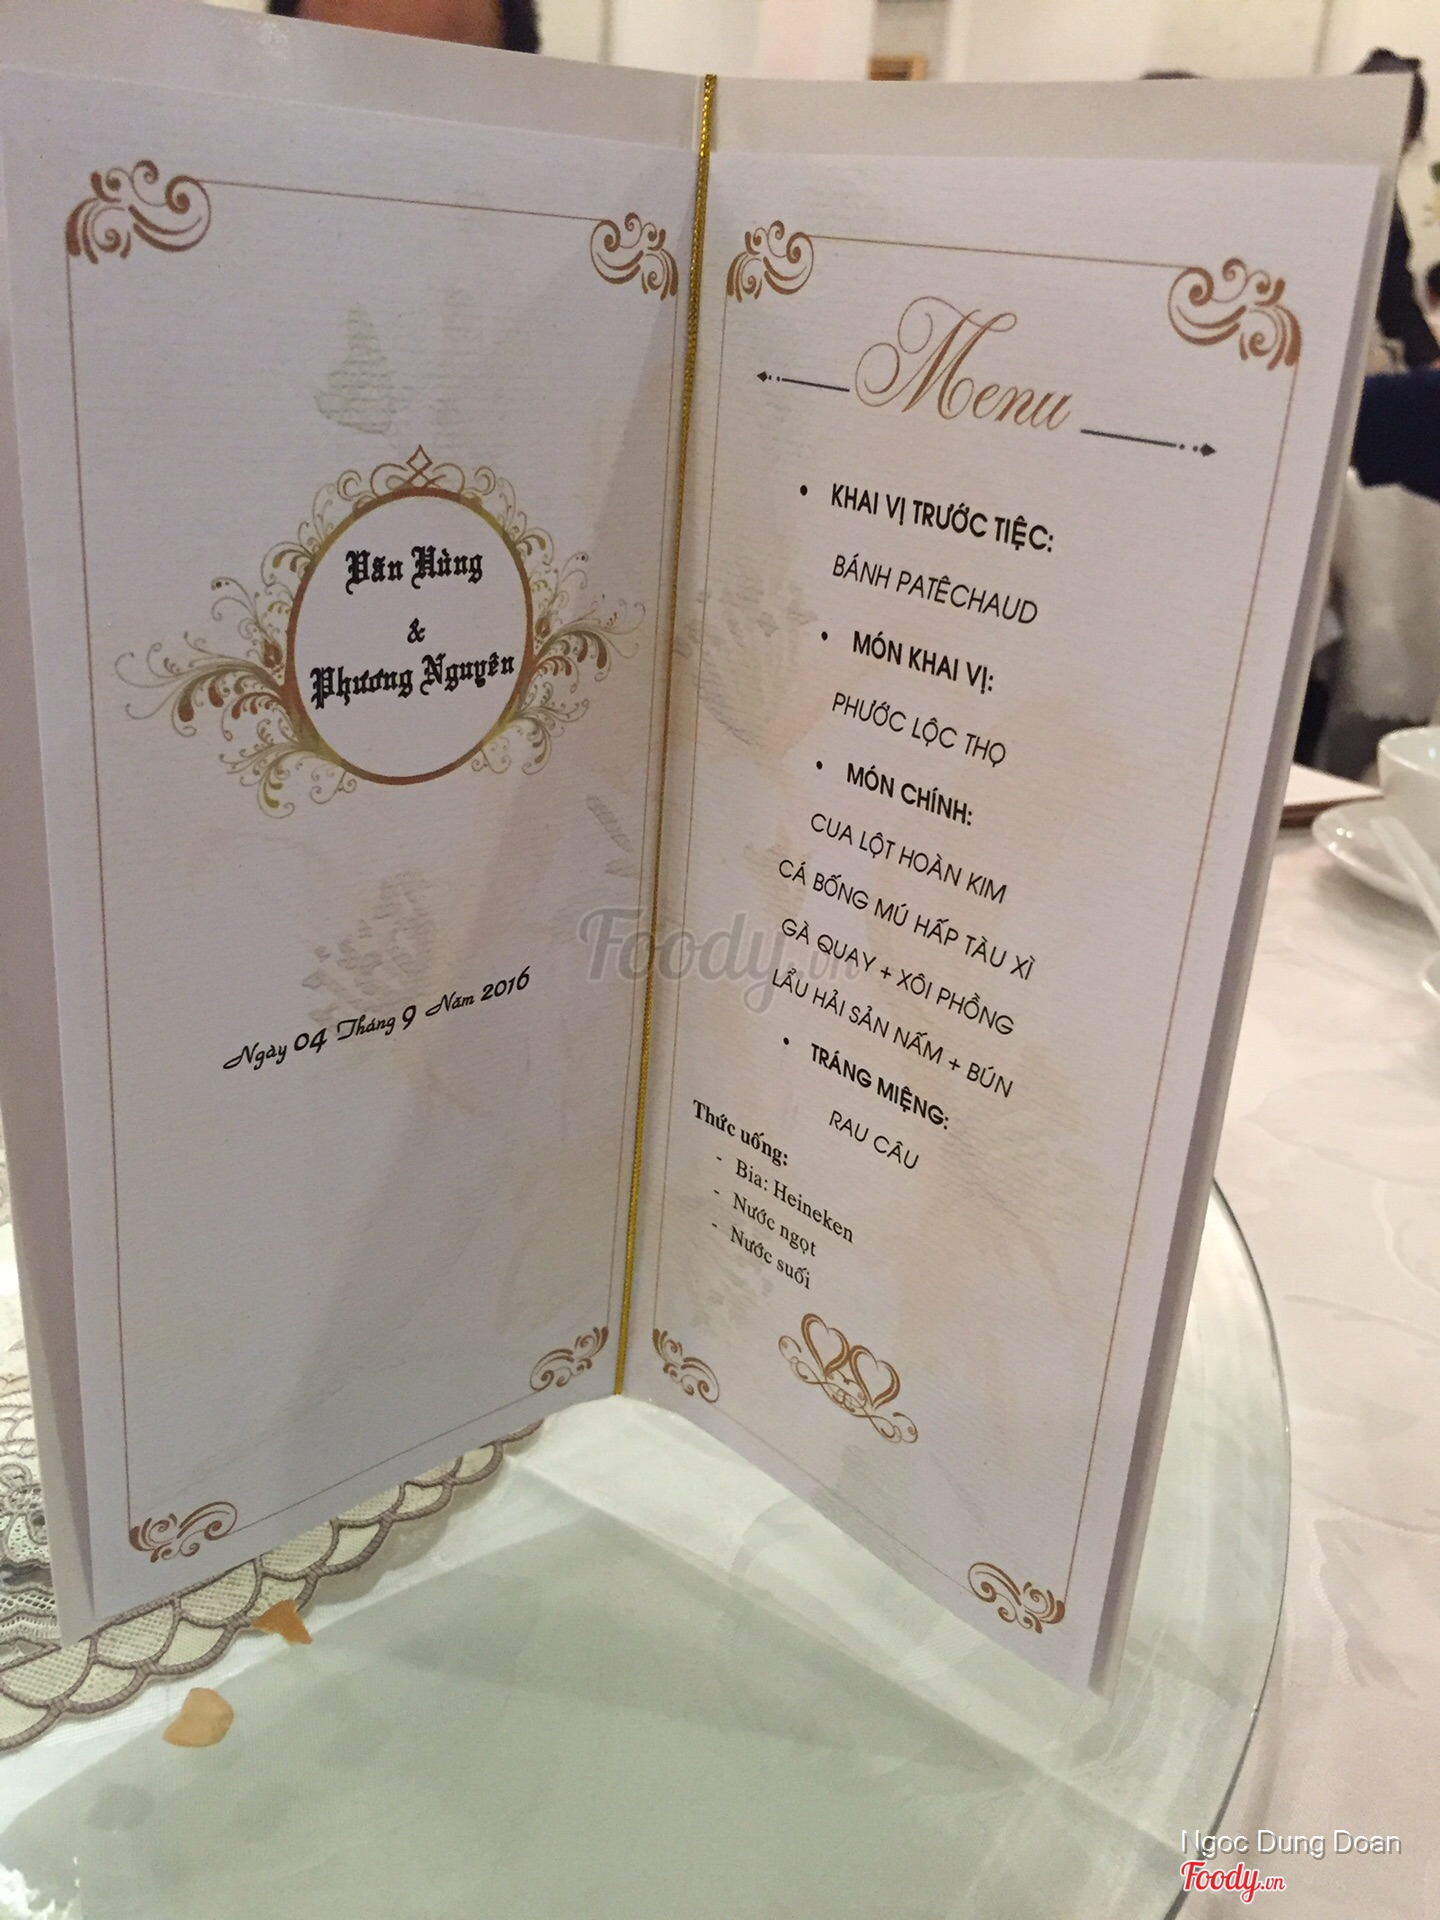 Văn Hùng
&
Phương Nguyên
Ngày 04 Tháng 9 Năm 2016
Menu
• KHAI VỊ TRƯỚC TIỆC:
BÁNH PATÊCHAUD
• MÓN KHAI VỊ:
PHƯỚC LỘC THỌ
• MÓN CHÍNH:
CUA LỘT HOÀN KIM
CÁ BỐNG MÚ HẤP TÀU XÌ
GÀ QUAY + XÔI PHỒNG
LẨU HẢI SẢN NẤM + BÚN
• TRÁNG MIỆNG:
RAU CÂU
Thức uống:
- Bia: Heineken
- Nước ngọt
- Nước suối
Foody.vn
Ngoc Dung Doan
Foody.vn